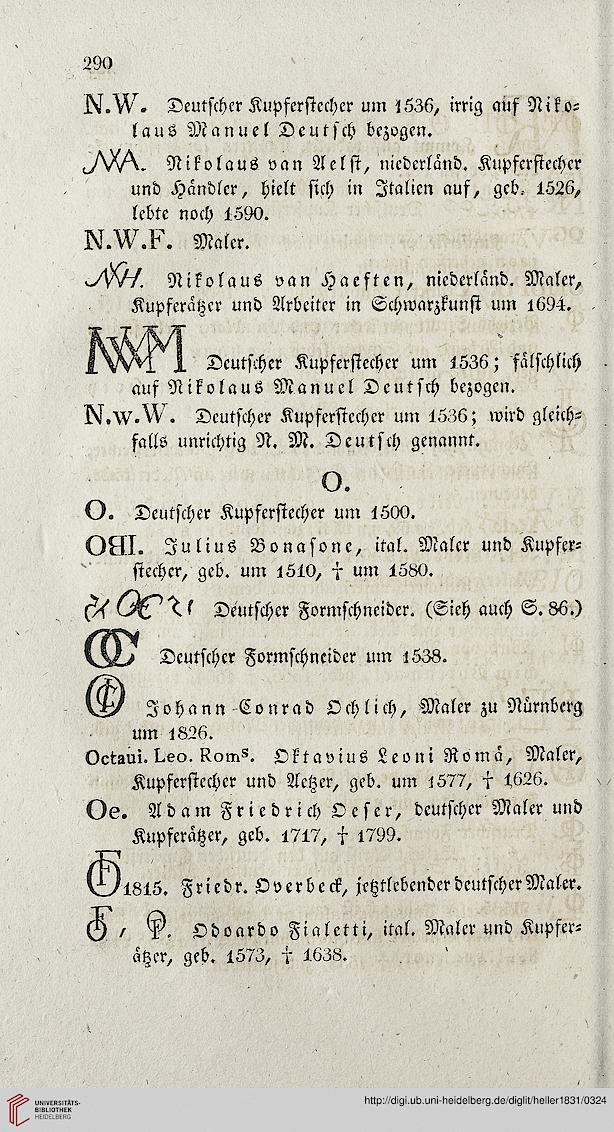 290
N.W. Deutscher Kupferstecher um 1536, irrig auf Niko-
laus Manuel Deutsch bezogen.
Nikolaus van Aelst, niederländ. Kupferstecher
und Händler, hielt sich in Italien auf, geb. 1526,
lebte noch 1590.
N.W.F. Maler.
Nikolaus van Haeften, niederländ. Maler,
Kupferätzer und Arbeiter in Schwarzkunst um 1694.
Deutscher Kupferstecher um 1536; fälschlich
auf Nikolaus Manuel Deutsch bezogen.
N.w.W. Deutscher Kupferstecher um 1536; wird gleich-
falls unrichtig N. M. Deutsch genannt.
O.
O. Deutscher Kupferstecher um 1500.
Julius Bonasone, ital. Maler und Kupfer-
stecher, geb. um 1510, † um 1580.
Deutscher Formschneider. (Sieh auch S. 86.)
OC Deutscher Formschneider um 1538.
Johann Conrad Ochlich, Maler zu Nürnberg
um 1826.
Octaui. Leo. Romˢ. Oktavius Leoni Romà, Maler,
Kupferstecher und Aetzer, geb. um 1577, † 1626.
Oe. Adam Friedrich Oeser, deutscher Maler und
Kupferätzer, geb. 1717, † 1799.
1815. Friedr. Overbeck, jetztlebender deutscher Maler.
Odoardo Fialetti, ital. Maler und Kupfer-
ätzer, geb. 1573, † 1638.
UNIVERSITÄTS-
BIBLIOTHEK
HEIDELBERG
http://digi.ub.uni-heidelberg.de/diglit/heller1831/0324